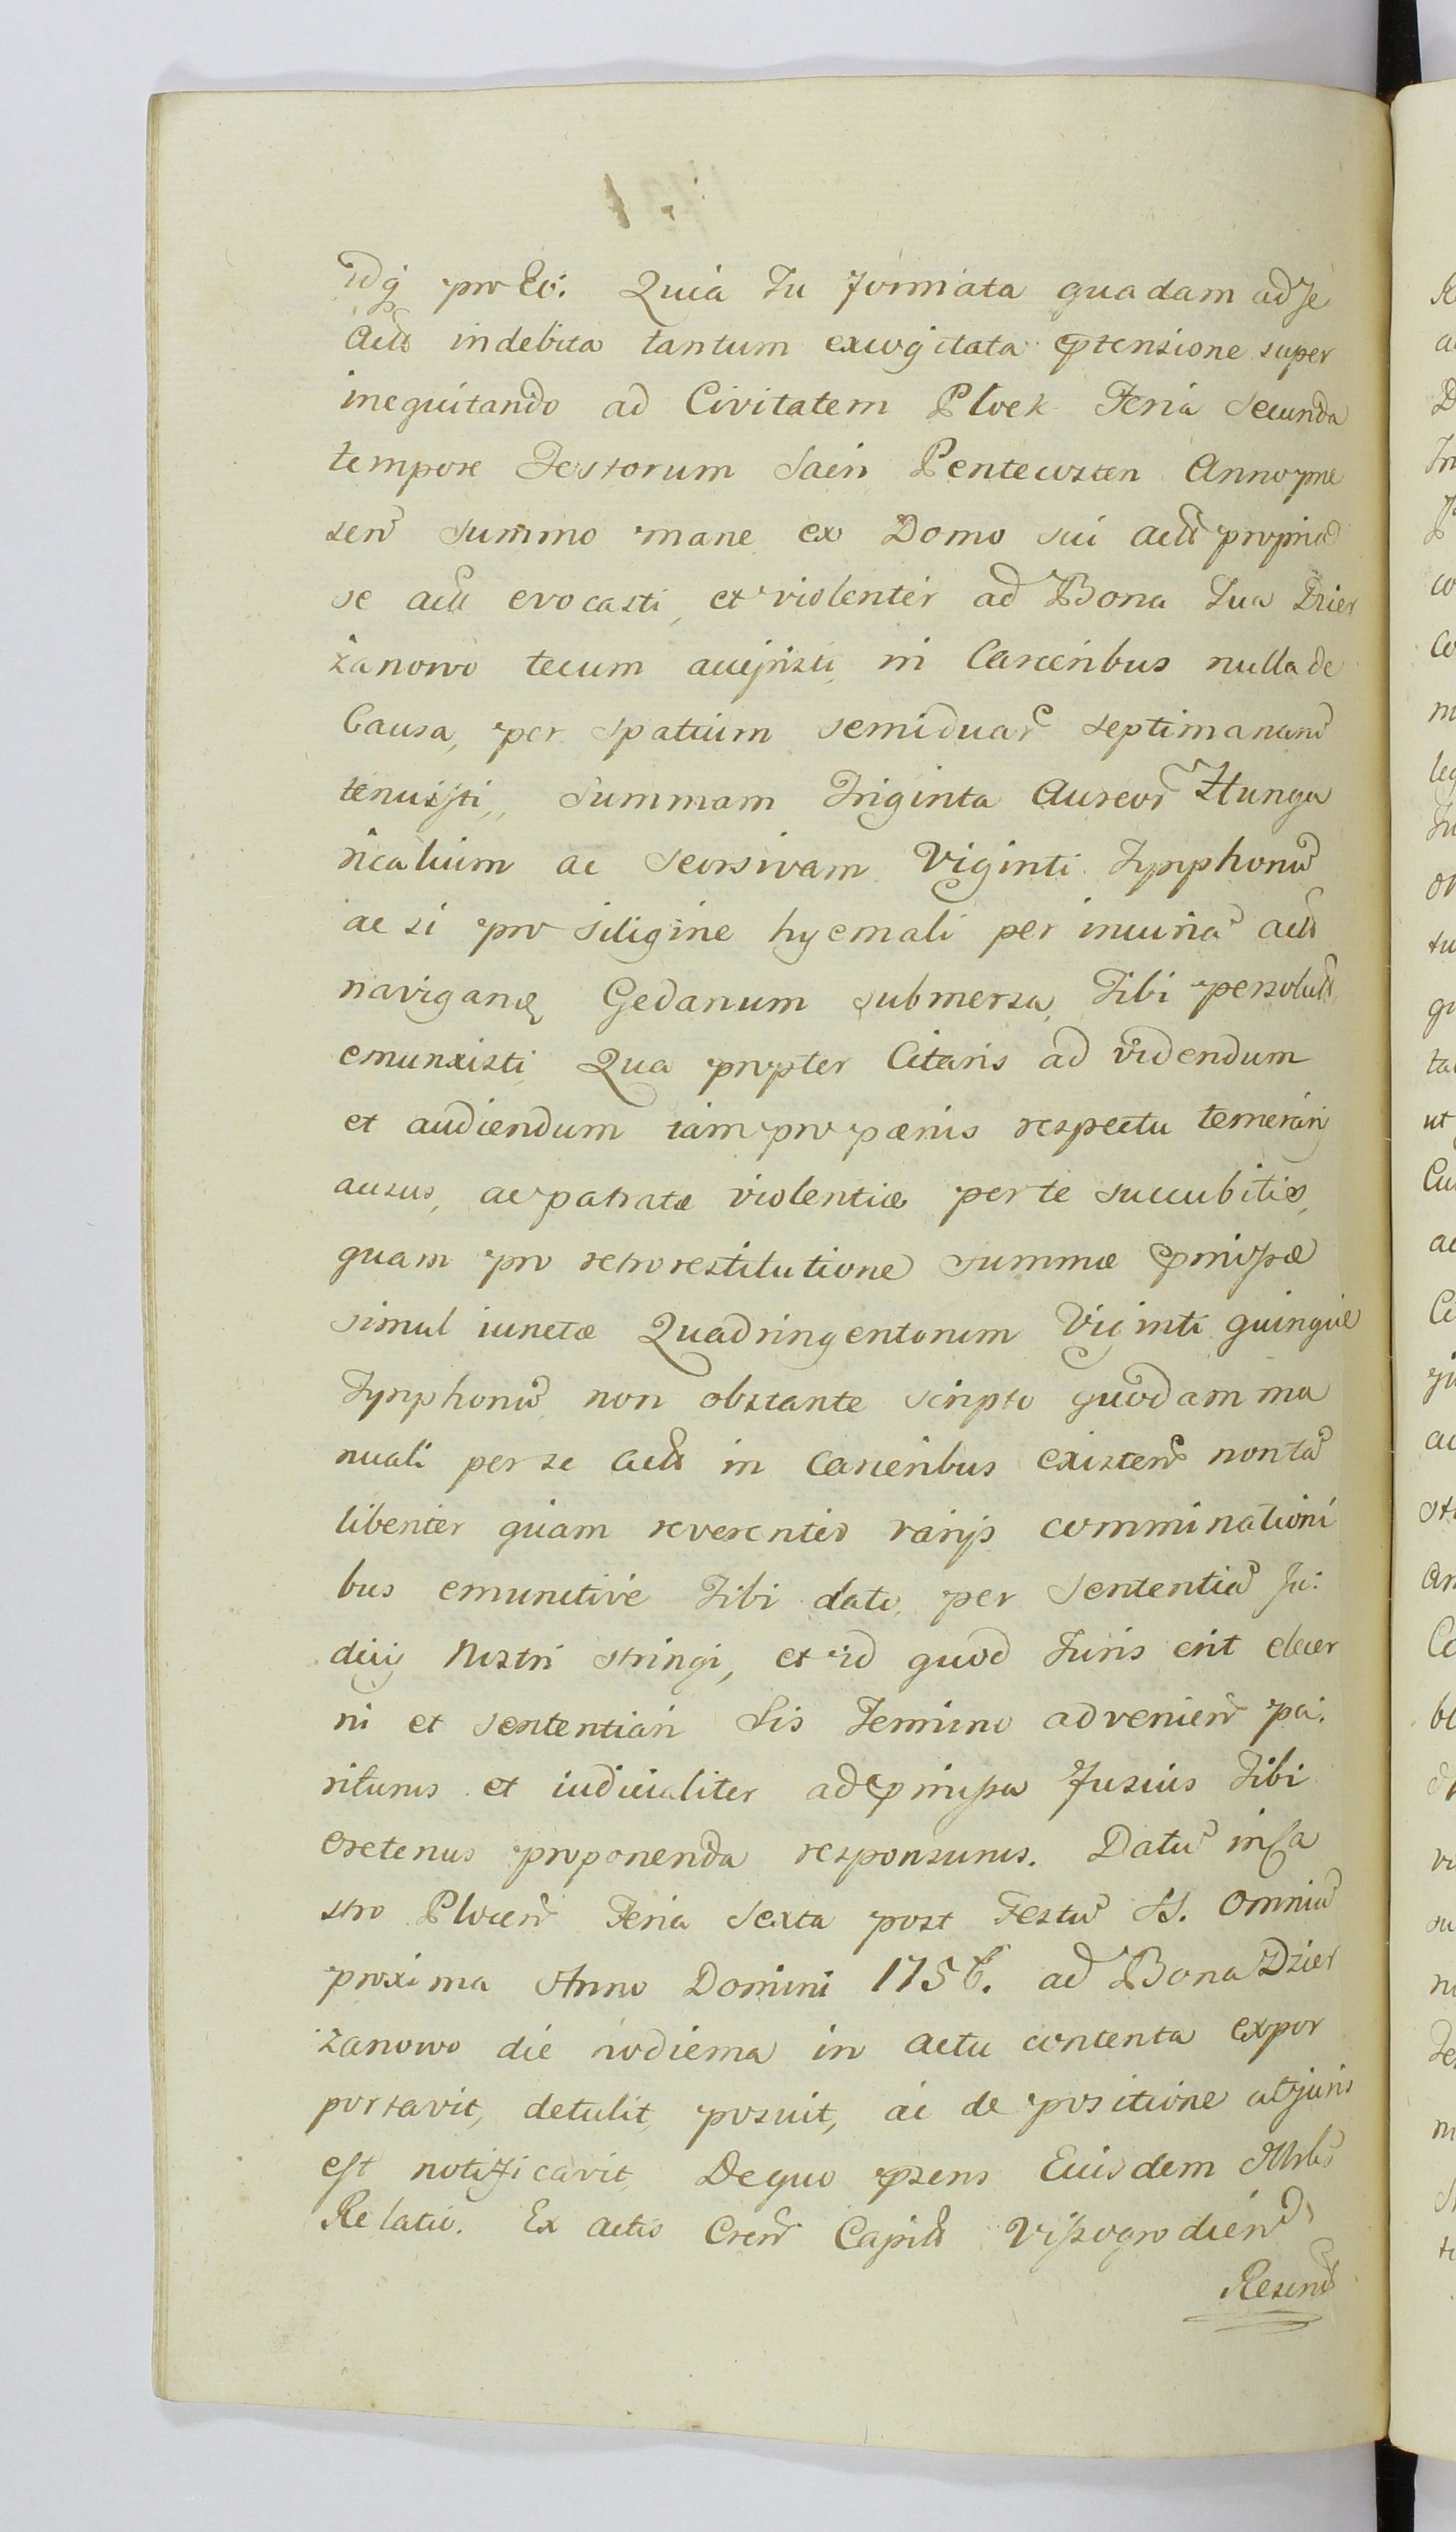 Idq pro Eo. Quia Tu formata quadam ad se
Actt indebita tantum excogitata prtensione super
inequitando ad Civitatem Plock Feria Secunda
tempore Festorum Sacr Pentecosten Anno prae
sen summo mane ex Domo sui actt propria
se actt evocasti, et violenter ad Bona Tua Dzier
żanowo tecum accepisti, in Carceribus nulla de
Causa, per spatium semiduar septimanaru
tenuisti, Summam Triginta Aureor Hunga
ricalium ac Seorsivam Viginti Tynphonu
ac si pro siligine hyemali per incuria actt
navigan Gedanum submersa, Tibi persolut
emunxisti Qua propter Citaris ad videndum
et audiendum tam pro paenis respectu temerarij
ausus, ac patratae violentiae per te succubitis,
quam pro retrorestitutione summae prmissae
simul iunctae Quadringentorum Viginti quinque
Tynphonu non obstante scripto quodam ma
nuali per se Actt in carceribus existen non ta
libenter quam reverenter varijs comminationi
bus emunctive Tibi dato, per Sententia Ju:
dicij Nostri stringi, et id quod Juris erit decer
ni et sententiari Sis Termino advenien pa:
riturus et iudicialiter ad prmissa fusius Tibi
oretenus proponenda responsurus. Datu in Ca
stro Plocen Feria Sexta post Festu SS. Omniu
proxima Anno Domini 1756. ad Bona Dzier
zanowo die hodierna in actu contenta expor
portavit, detulit, posuit, ac de positione at juris
est notificavit, De quo prsens Eiusdem Mrlis
Relatio. Ex Actis Cren Capitt Viszogrodien
Rescrip